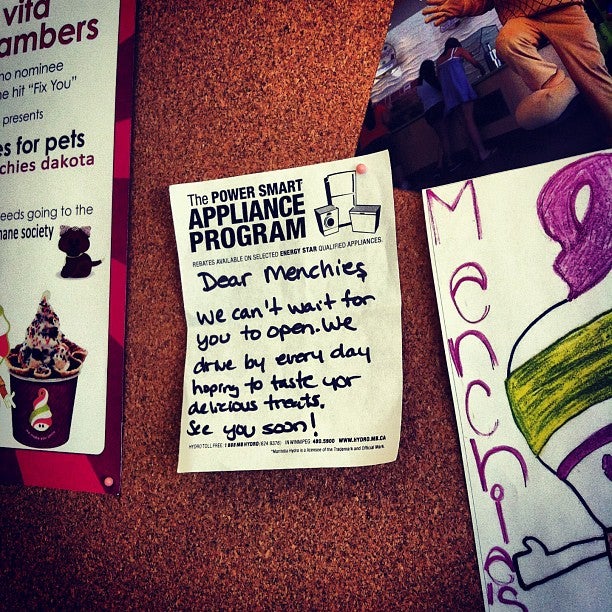 vita
ambers
no nominee
e hit "Fix You"
presents
es for pets
chies dakota
eeds going to the
ane society
The POWER SMART
APPLIANCE
PROGRAM
REBATES AVAILABLE ON SELECTED ENERGY STAR QUALIFIED APPLIANCES.
Dear Menchies
We can't wait for
you to open. We
drive by every day
hoping to taste yor
delicious treats.
See you soon!
HYDRO TOLL FREE 1 888 MB HYDRO (624 9376) IN WINNIPEG 480.5900 WWW.HYDRO.MB.CA
*Manitoba Hydro is a licensee of the Trademark and Official Mark.
Menchie's